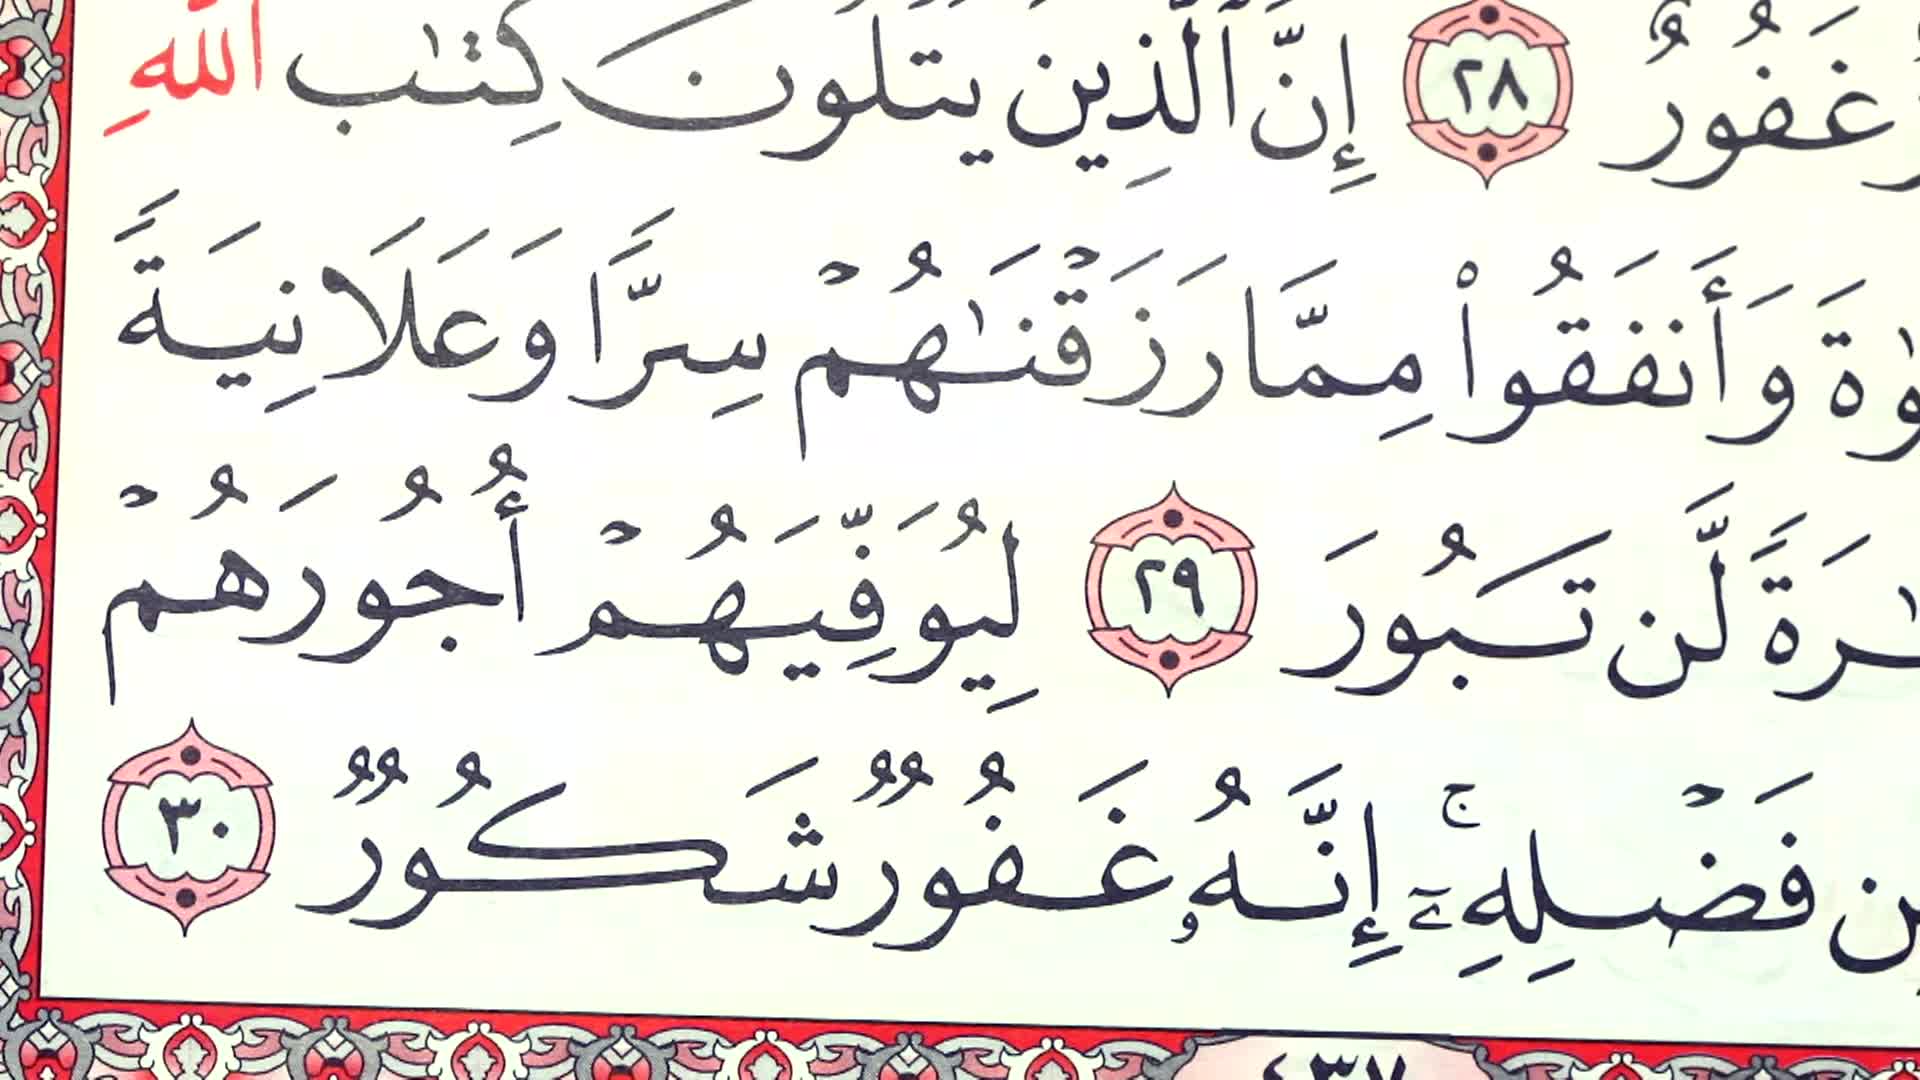 غَفُورٌ ٢٨ إِنَّ ٱلَّذِينَ يَتْلُونَ كِتَٰبَ ٱللَّهِ
وَأَنفَقُوا۟ مِمَّا رَزَقْنَٰهُمْ سِرًّا وَعَلَانِيَةً
لَّن تَبُورَ ٢٩ لِيُوَفِّيَهُمْ أُجُورَهُمْ
فَضْلِهِۦٓ ۚ إِنَّهُۥ غَفُورٌ شَكُورٌ ٣٠
٤٣٧